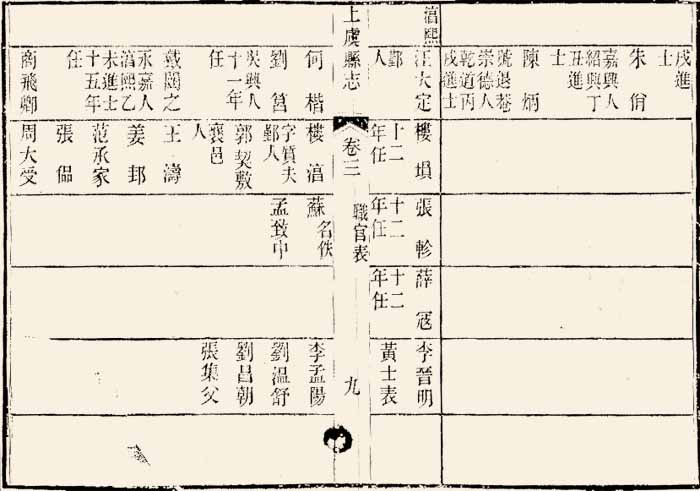 戌進
士
朱佾
嘉興人
紹興丁
丑進
士
陳炳
號退菴
崇德人
乾道丙
戌進士
淳熙
汪大定
鄞
人
樓塤
十二
年任
張軫
十二
年任
薛寇
十二
年任
李晉明
黃士表
上虞縣志
卷三
職官表
九
何楷
劉筥
吳興人
十一年
任
戴闓之
永嘉人
淳熙乙
未進士
十五年
任
商飛卿
樓淓
字質夫
鄞人
郭契敷
襄邑
人
王濤
姜邽
范承家
張倡
周大受
蘇名佚
孟致中
李孟陽
劉溫舒
劉昌朝
張集父